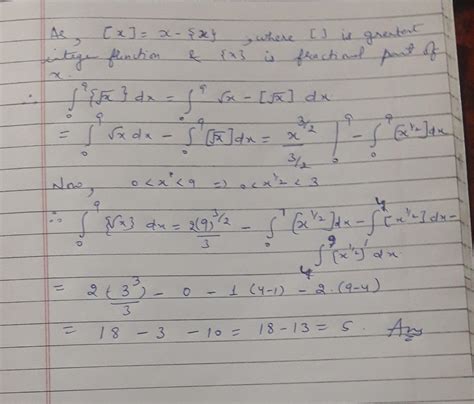 As, [x] = x - {x} , where [] is greatest
integer function & {x} is fractional part of
x.
∴ ∫₀⁹ {√x} dx = ∫₀⁹ √x - [√x] dx
= ∫₀⁹ √x dx - ∫₀⁹ [√x] dx = x^(3/2) / (3/2) |₀⁹ - ∫₀⁹ [x^(1/2)] dx
Now, 0 < x < 9 ⇒ 0 < x^(1/2) < 3
∴ ∫₀⁹ {√x} dx = 2(9)^(3/2) / 3 - ∫₀¹ [x^(1/2)] dx - ∫₁⁴ [x^(1/2)] dx -
∫₄⁹ [x^(1/2)] dx.
= 2(3³) / 3 - 0 - 1(4-1) - 2.(9-4)
= 18 - 3 - 10 = 18 - 13 = 5. Ans